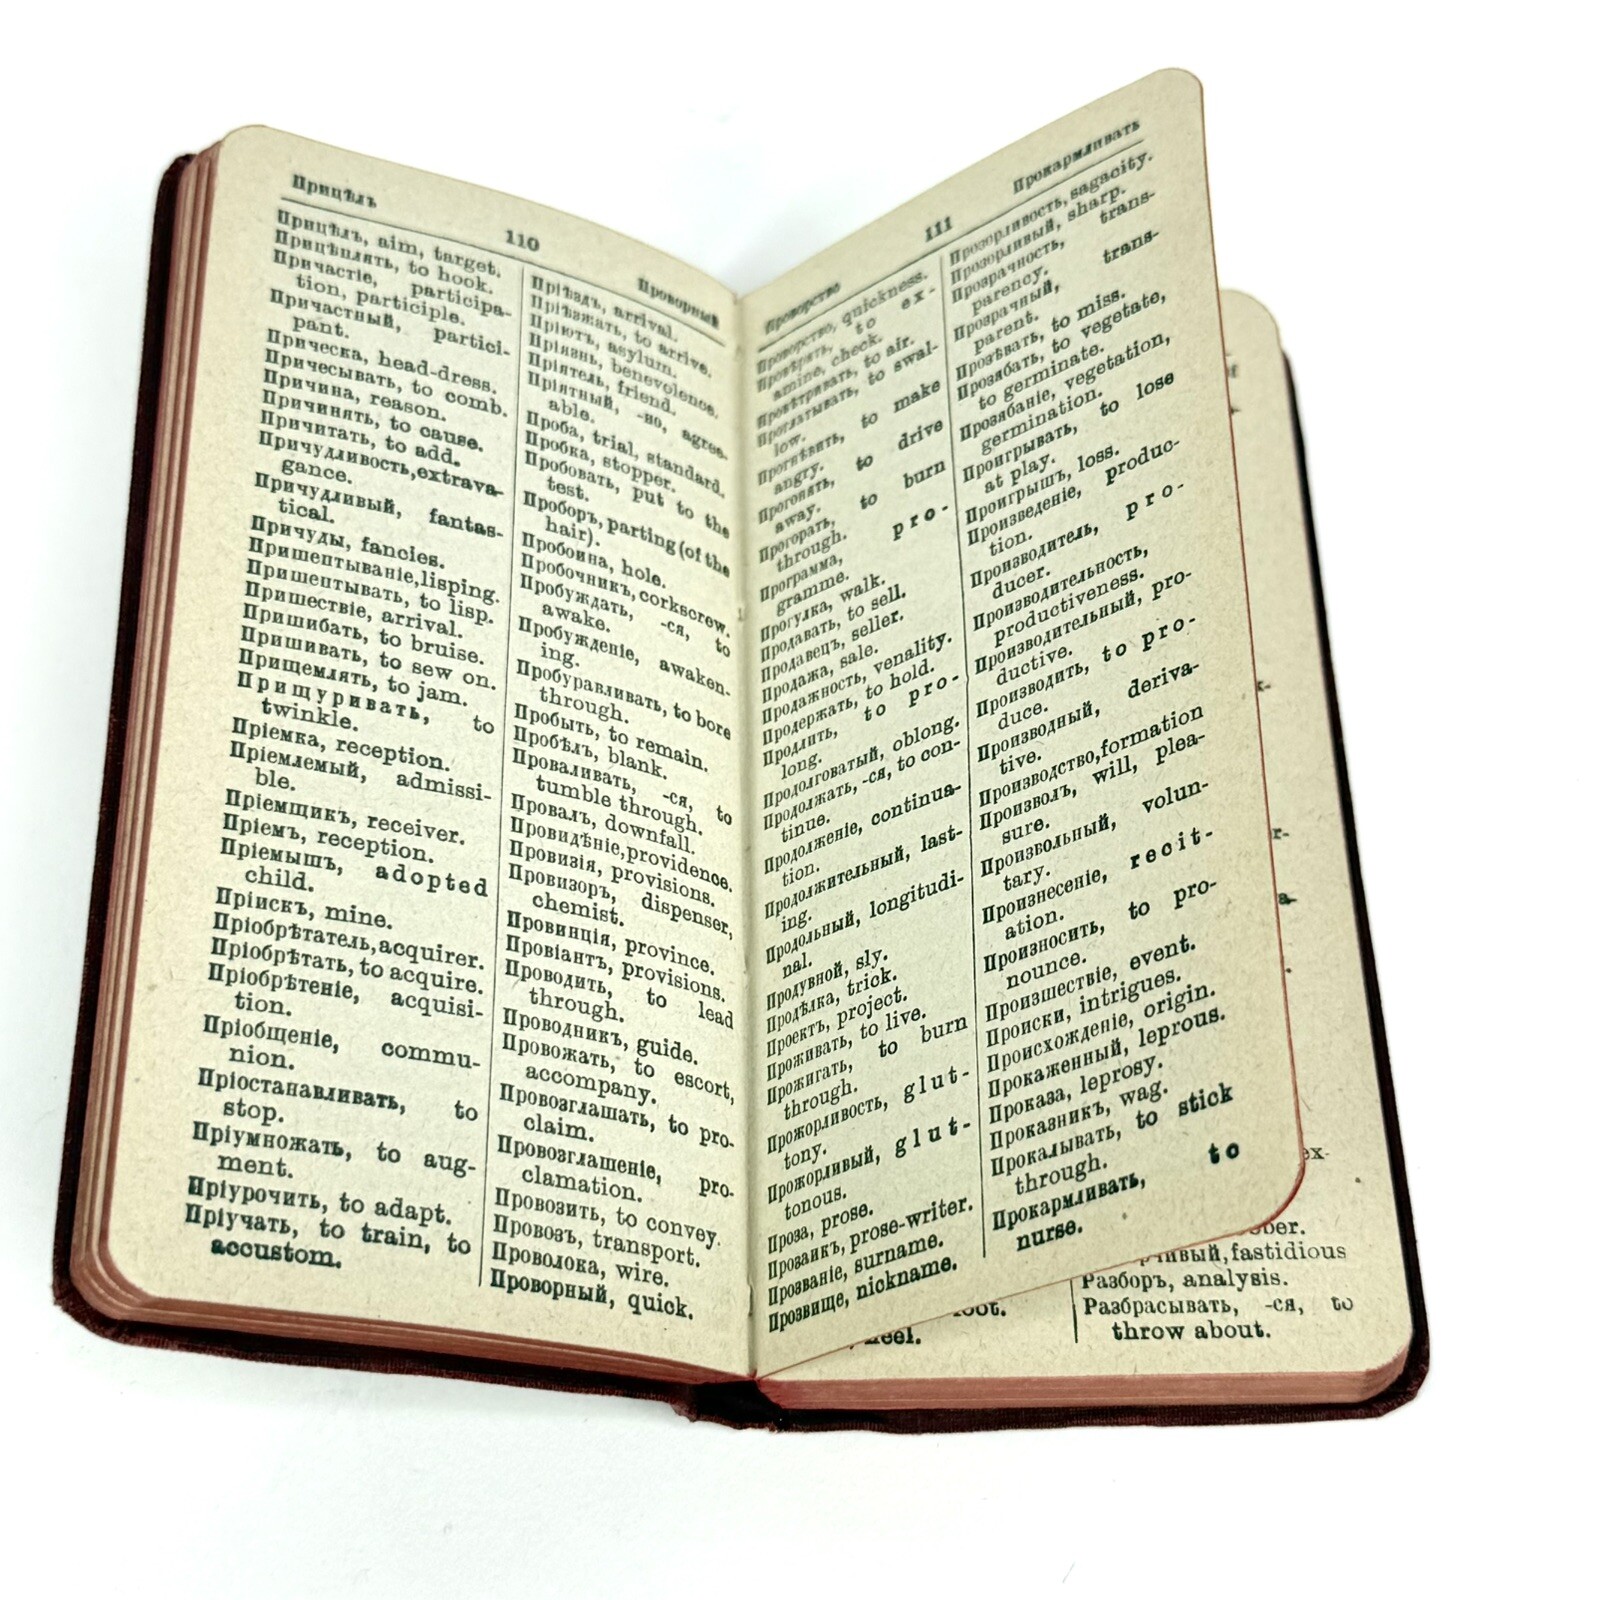 Прицѣлъ
110
Проворный
Прицѣлъ, aim, target.
Прицѣплять, to hook.
Причастіе, participa-
tion, participle.
Причастный, partici-
pant.
Прическа, head-dress.
Причесывать, to comb.
Причина, reason.
Причинять, to cause.
Причитать, to add.
Причудливость,extrava-
gance.
Причудливый, fantas-
tical.
Причуды, fancies.
Пришептываніе,lisping.
Пришептывать, to lisp.
Пришествіе, arrival.
Пришибать, to bruise.
Пришивать, to sew on.
Прищемлять, to jam.
Прищуривать, to
twinkle.
Пріемка, reception.
Пріемлемый, admissi-
ble.
Пріемщикъ, receiver.
Пріемъ, reception.
Пріемышъ, adopted
child.
Пріискъ, mine.
Пріобрѣтатель,acquirer.
Пріобрѣтать, to acquire.
Пріобрѣтеніе, acquisi-
tion.
Пріобщеніе, commu-
nion.
Пріостанавливать, to
stop.
Пріумножать, to aug-
ment.
Пріурочить, to adapt.
Пріучать, to train, to
accustom.
Пріѣздъ, arrival.
Пріѣзжать, to arrive.
Пріютъ, asylum.
Пріязнь, benevolence.
Пріятель, friend.
Пріятный, -но, agree-
able.
Проба, trial, standard.
Пробка, stopper.
Пробовать, put to the
test.
Проборъ, parting (of the
hair).
Пробоина, hole.
Пробочникъ, corkscrew.
Пробуждать, -ся, to
awake.
Пробужденіе, awaken-
ing.
Пробуравливать, to bore
through.
Пробыть, to remain.
Пробѣлъ, blank.
Проваливать, -ся, to
tumble through.
Провалъ, downfall.
Провидѣніе,providence.
Провизія, provisions.
Провизоръ, dispenser,
chemist.
Провинція, province.
Провіантъ, provisions.
Проводить, to lead
through.
Проводникъ, guide.
Провожать, to escort,
accompany.
Провозглашать, to pro-
claim.
Провозглашеніе, pro-
clamation.
Провозить, to convey.
Провозъ, transport.
Проволока, wire.
Проворный, quick.
Проворство
111
Прокармливать
Проворство, quickness.
Провѣрять, to ex-
amine, check.
Провѣтривать, to air.
Проглатывать, to swal-
low.
Прогнѣвить, to make
angry.
Прогонять, to drive
away.
Прогорать, to burn
through.
Программа, pro-
gramme.
Прогулка, walk.
Продавать, to sell.
Продавецъ, seller.
Продажа, sale.
Продажность, venality.
Продержать, to hold.
Продлить, to pro-
long.
Продолговатый, oblong.
Продолжать, -ся, to con-
tinue.
Продолженіе, continua-
tion.
Продолжительный, last-
ing.
Продольный, longitudi-
nal.
Продувной, sly.
Продѣлка, trick.
Проектъ, project.
Проживать, to live.
Прожигать, to burn
through.
Прожорливость, glut-
tony.
Прожорливый, glut-
tonous.
Проза, prose.
Прозаикъ, prose-writer.
Прозваніе, surname.
Прозвище, nickname.
Прозорливость, sagacity.
Прозорливый, sharp.
Прозрачность, trans-
parency.
Прозрачный, trans-
parent.
Прозѣвать, to miss.
Прозябать, to vegetate,
to germinate.
Прозябаніе, vegetation,
germination.
Проигрывать, to lose
at play.
Проигрышъ, loss.
Произведеніе, produc-
tion.
Производитель, pro-
ducer.
Производительность,
productiveness.
Производительный, pro-
ductive.
Производить, to pro-
duce.
Производный, deriva-
tive.
Производство,formation
Произволъ, will, plea-
sure.
Произвольный, volun-
tary.
Произнесеніе, recit-
ation.
Произносить, to pro-
nounce.
Произшествіе, event.
Происки, intrigues.
Происхожденіе, origin.
Прокаженный, leprous.
Проказа, leprosy.
Проказникъ, wag.
Прокалывать, to stick
through.
Прокармливать, to
nurse.
fastidious
Разборъ, analysis.
Разбрасывать, -ся, to
throw about.